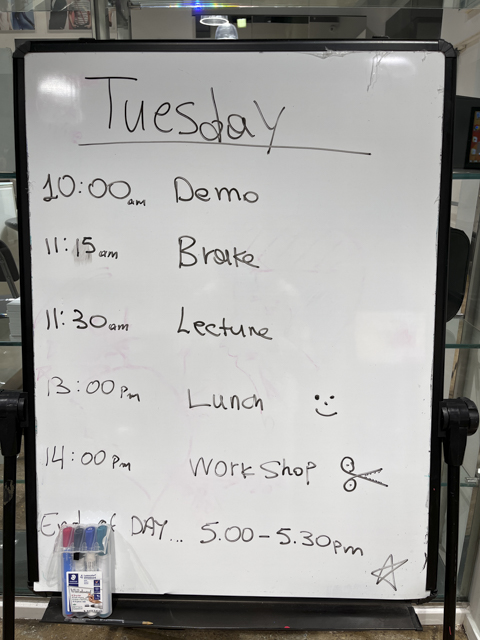 Tuesday
10:00am Demo
11:15am Brake
11:30am Lecture
13:00Pm Lunch
14:00Pm WorkShop
End of DAY... 5.00-5.30pm
STAEDTLER